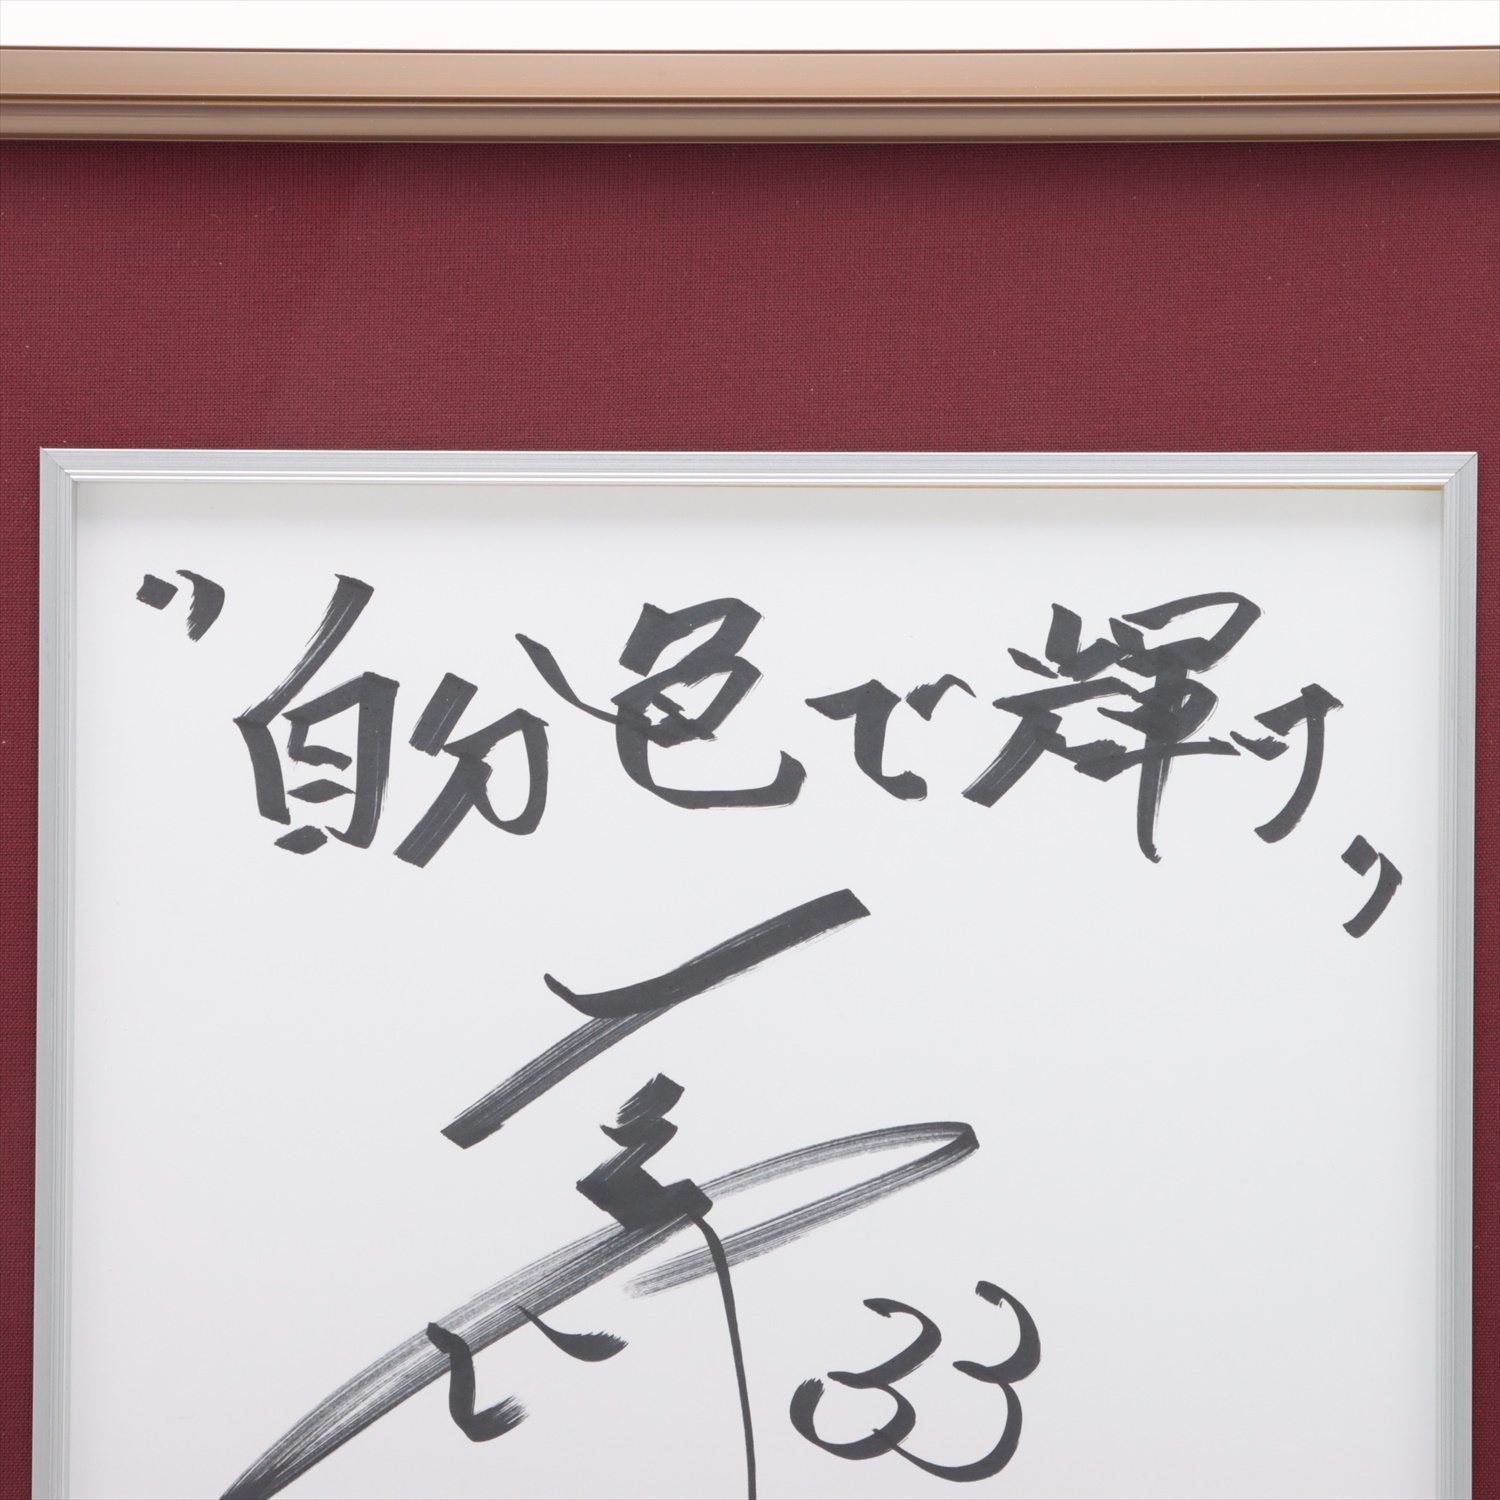 "自分色で輝け"
33